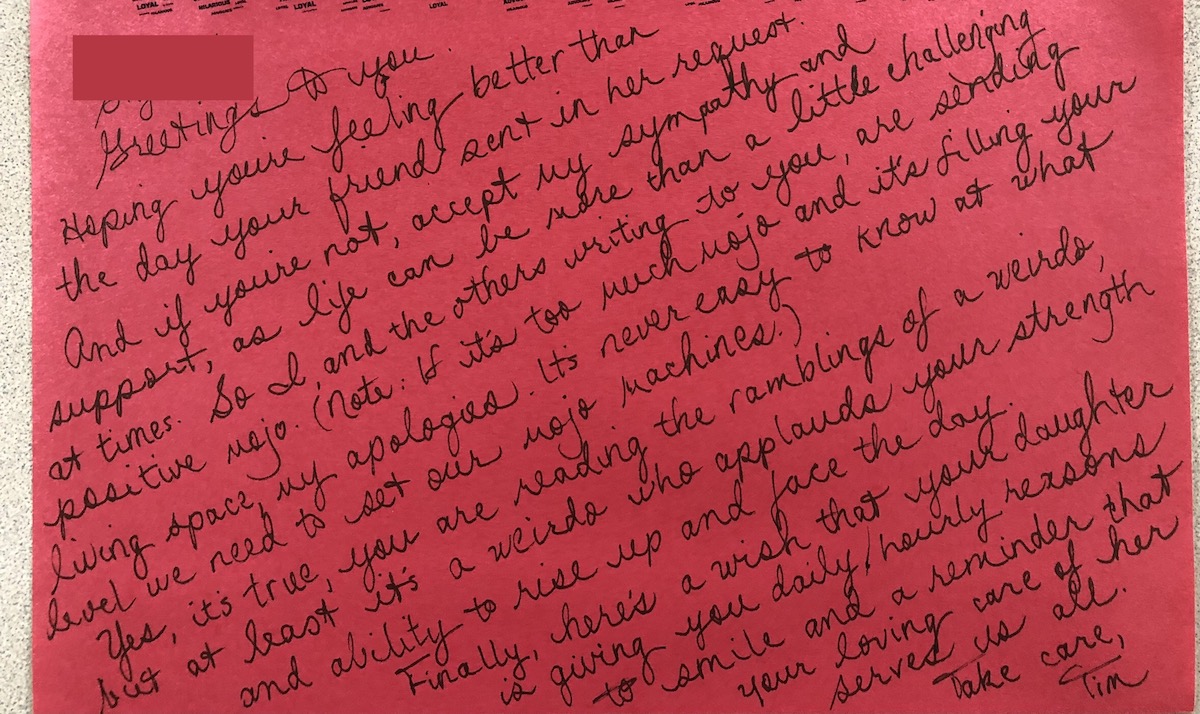 LOYAL HILARIOUS LOYAL LOYAL
Greetings to you.
Hoping you're feeling better than
the day your friend sent in her request.
And if you're not, accept my sympathy and
support, as life can be more than a little challenging
at times. So I, and the others writing to you, are sending
positive mojo. (Note: If it's too much mojo and it's filling your
living space, my apologies. It's never easy to know at what
level we need to set our mojo machines.)
Yes, it's true, you are reading the ramblings of a weirdo,
but at least it's a weirdo who applauds your strength
and ability to rise up and face the day.
Finally, here's a wish that your daughter
is giving you daily/hourly reasons
to smile and a reminder that
your loving care of her
serves us all.
Take care,
Tim